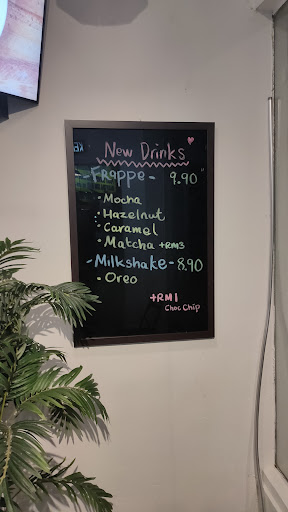 New Drinks
-Frappe- 9.90
• Mocha
• Hazelnut
• Caramel
• Matcha +RM3
-Milkshake- 8.90
• Oreo
+RM1
Choc Chip